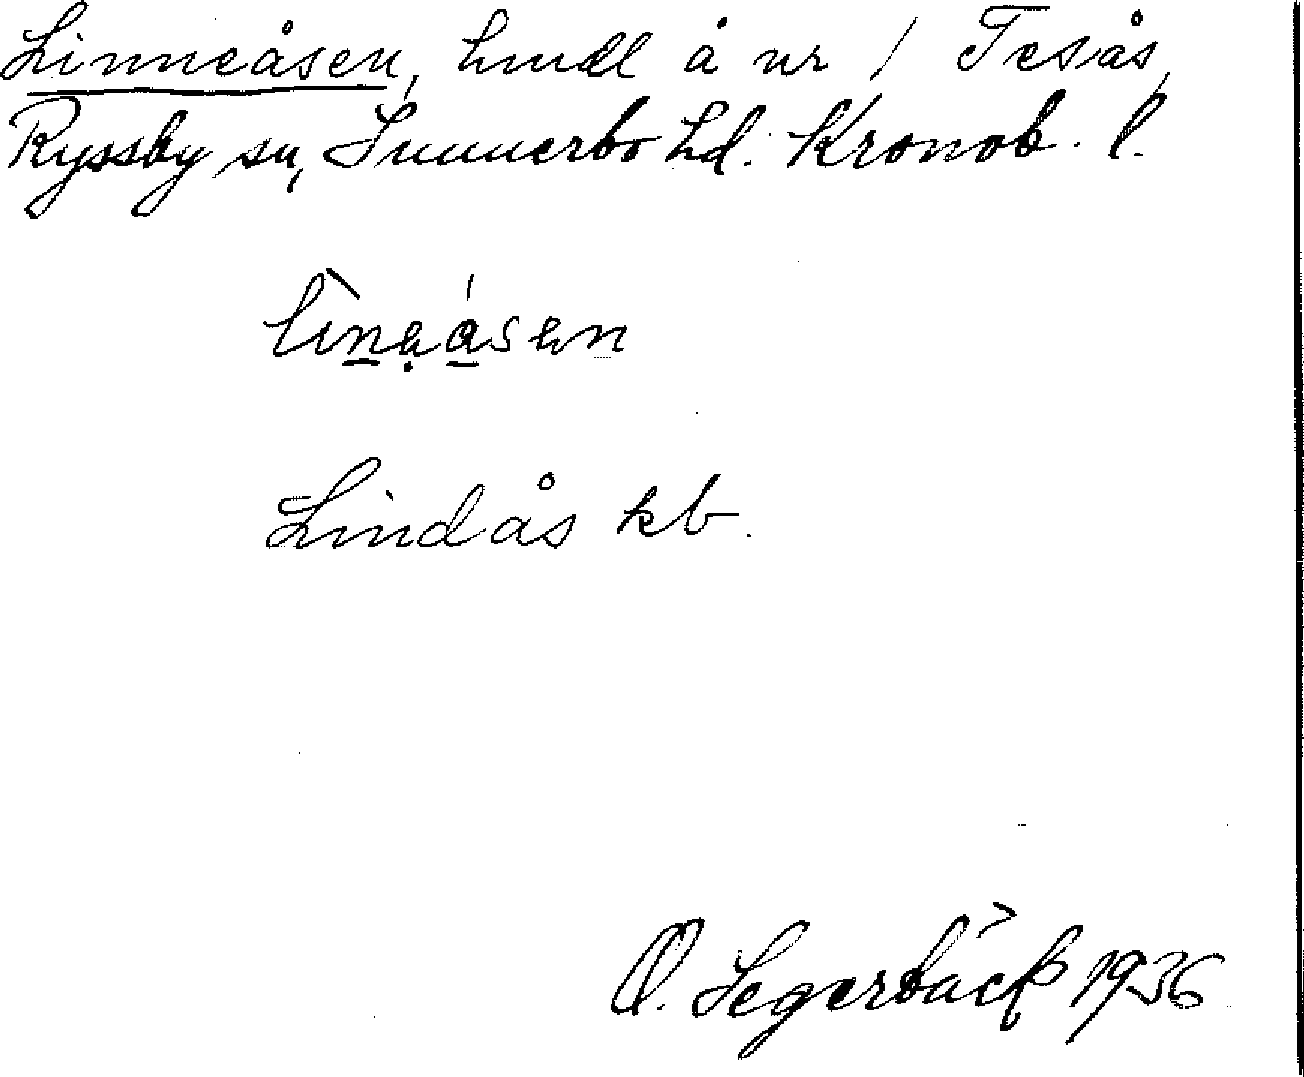 Linneåsen, hmdl å nr 1 Tesås,
Ryssby sn, Sunnerbo hd. Kronob. l.
lìnaásen
Lindås kb.
O. Segerbäck 1936